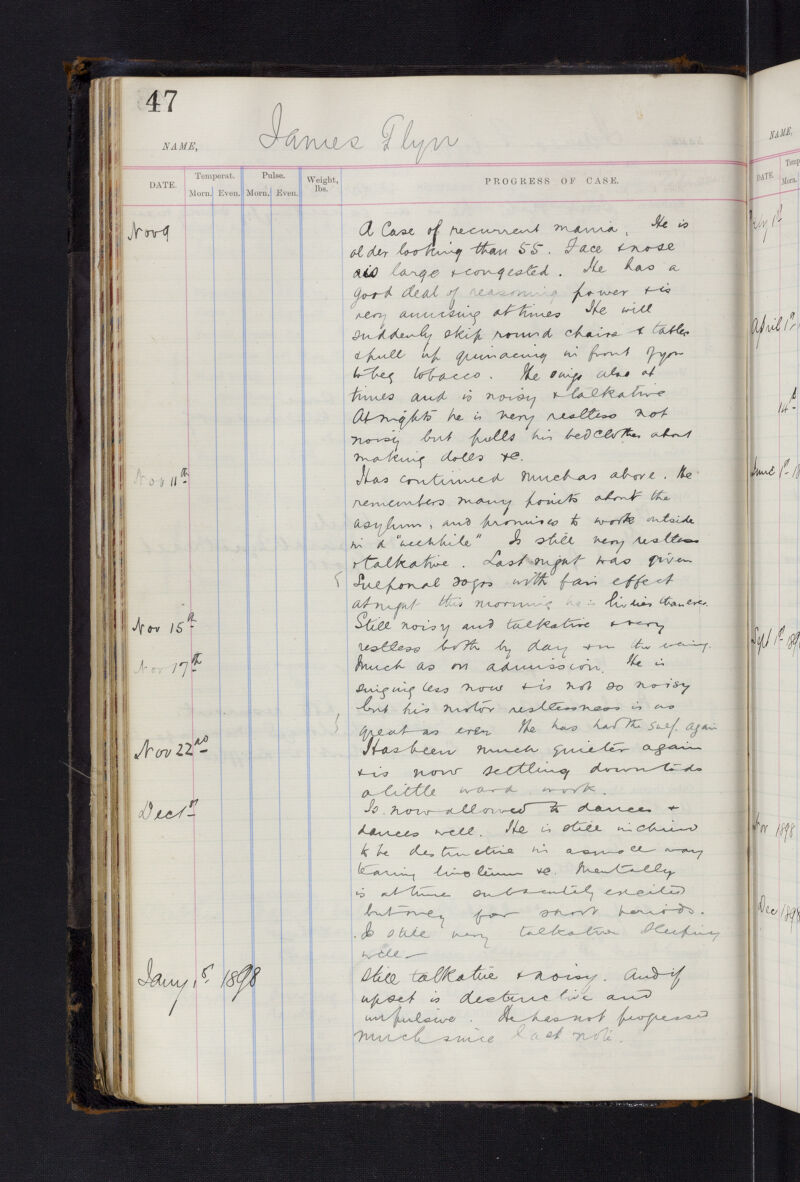 47
NAME, James Flyn
DATE. Temperat. Pulse. Weight, lbs. PROGRESS OF CASE.
Morn. Even. Morn. Even.
Nov 9 A Case of recurrent mania. He is
older looking than 55. Face & nose
are large & congested. He has a
good deal of reasoning power & is
very amusing at times He will
suddenly skip round chairs & tables
& pull up grimacing in front of you
to beg tobacco. He sings also at
times and is noisy & talkative
At nights he is very restless not
noisy but pulls his bedclothes about
making dolls &c.
Nov 11th Has continued much as above. He
remembers many points about the
asylum, and promises to work outside
in a "weewhile" Is still very restless
& talkative. Last night was given
Sulphonal 30grs with fair effect
at night this morning he is livelier than ever.
Nov 15th Still noisy and talkative & very
restless both by day & in the evening.
Nov 17th Much as on admission. He is
singing less now & is not so noisy
but his motor restlessness is as
great as ever He has had the Sulf. again
Nov 22nd Has been much quieter again
& is now settling down to do
a little ward work.
Dec 1st Is now allowed to dances &
dances well. He is still inclined
to be destructive in a small way
tearing linoleum &c. Mentally
is at times subacutely excited
but only for short periods.
Is still very talkative Sleeping
well
Jany 1st 1898 Still talkative & noisy. And if
upset is destructive and
impulsive. He has not progressed
much since last note.
NAME,
DATE. Temp
Morn.
April 1st
14th
June 1st 18
Sept 1st 189
Nov 1898
Dec 1898